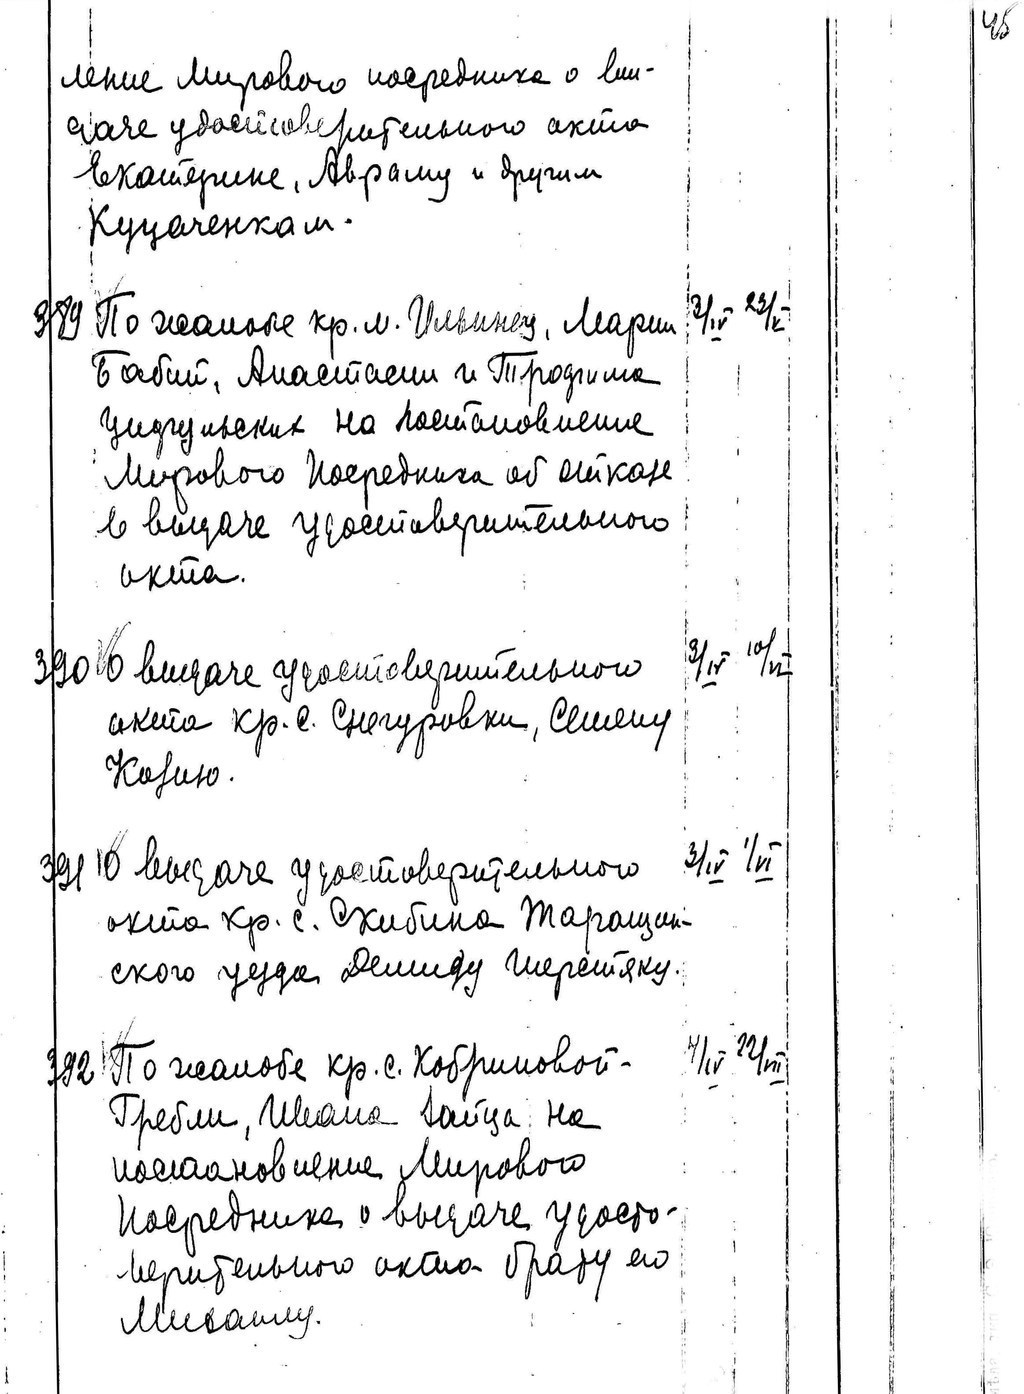 45
ление Мирового посредника о вы-
даче удостоверительного акта
Екатерине, Авраму и другим
Куцаченкам.
389 По жалобе кр. м. Ильинец, Марии 3/IV 23/V
Бабий, Анастасии и Трофима
на постановление
Мирового Посредника об отказе
в выдаче удостоверительного
акта.
390 О выдаче удостоверительного 3/IV 10/VI
акта кр. с. Снегуровки, Семену
Козию.
391 О выдаче удостоверительного 3/IV 1/VI
акта кр. с. Скибина Таращан-
ского уезда Демиду Шерстяку.
392 По жалобе кр. с. Хобриновой- 4/IV 22/VII
Гребли, Ивана Зайца на
постановление Мирового
Посредника о выдаче удосто-
верительного акта брату его
Михаилу.